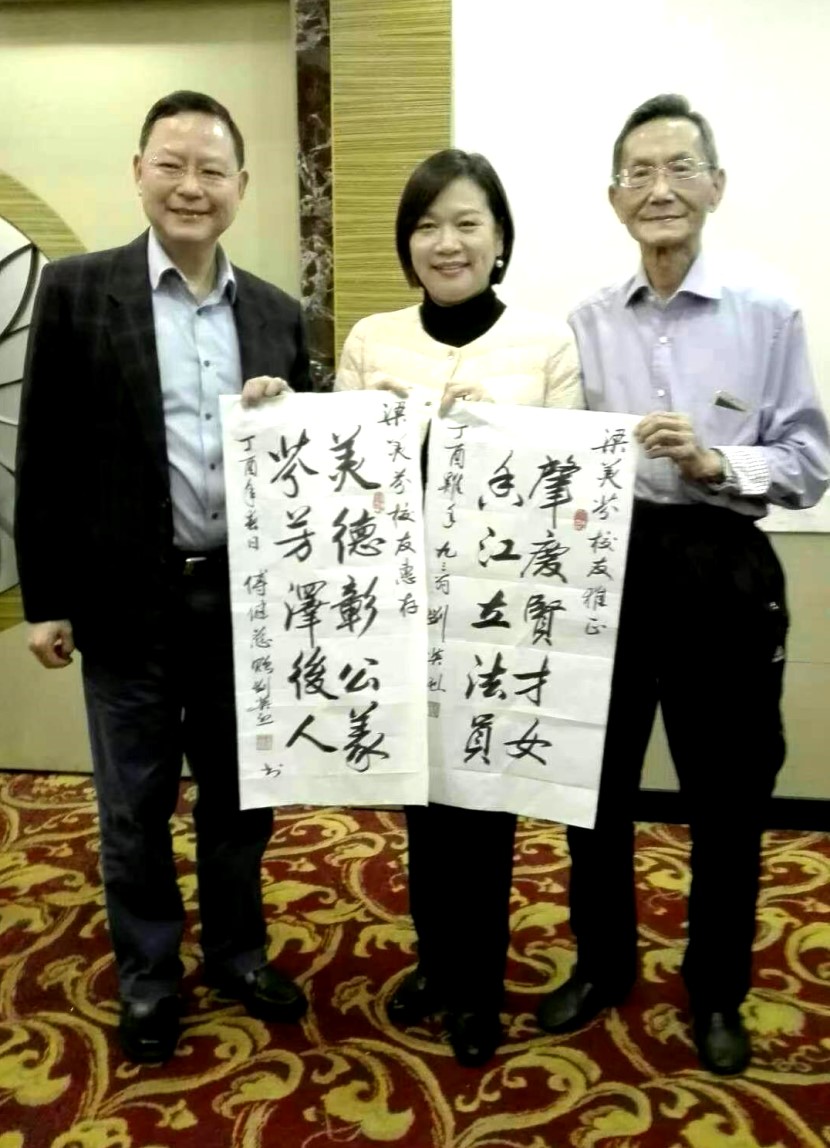 梁美芬校友雅正
肇慶賢才女
香江立法員
丁酉雞年九三翁劉
梁美芬校友惠存
美德彰公義
芬芳澤後人
丁酉年春日 傅健慈 劉 书